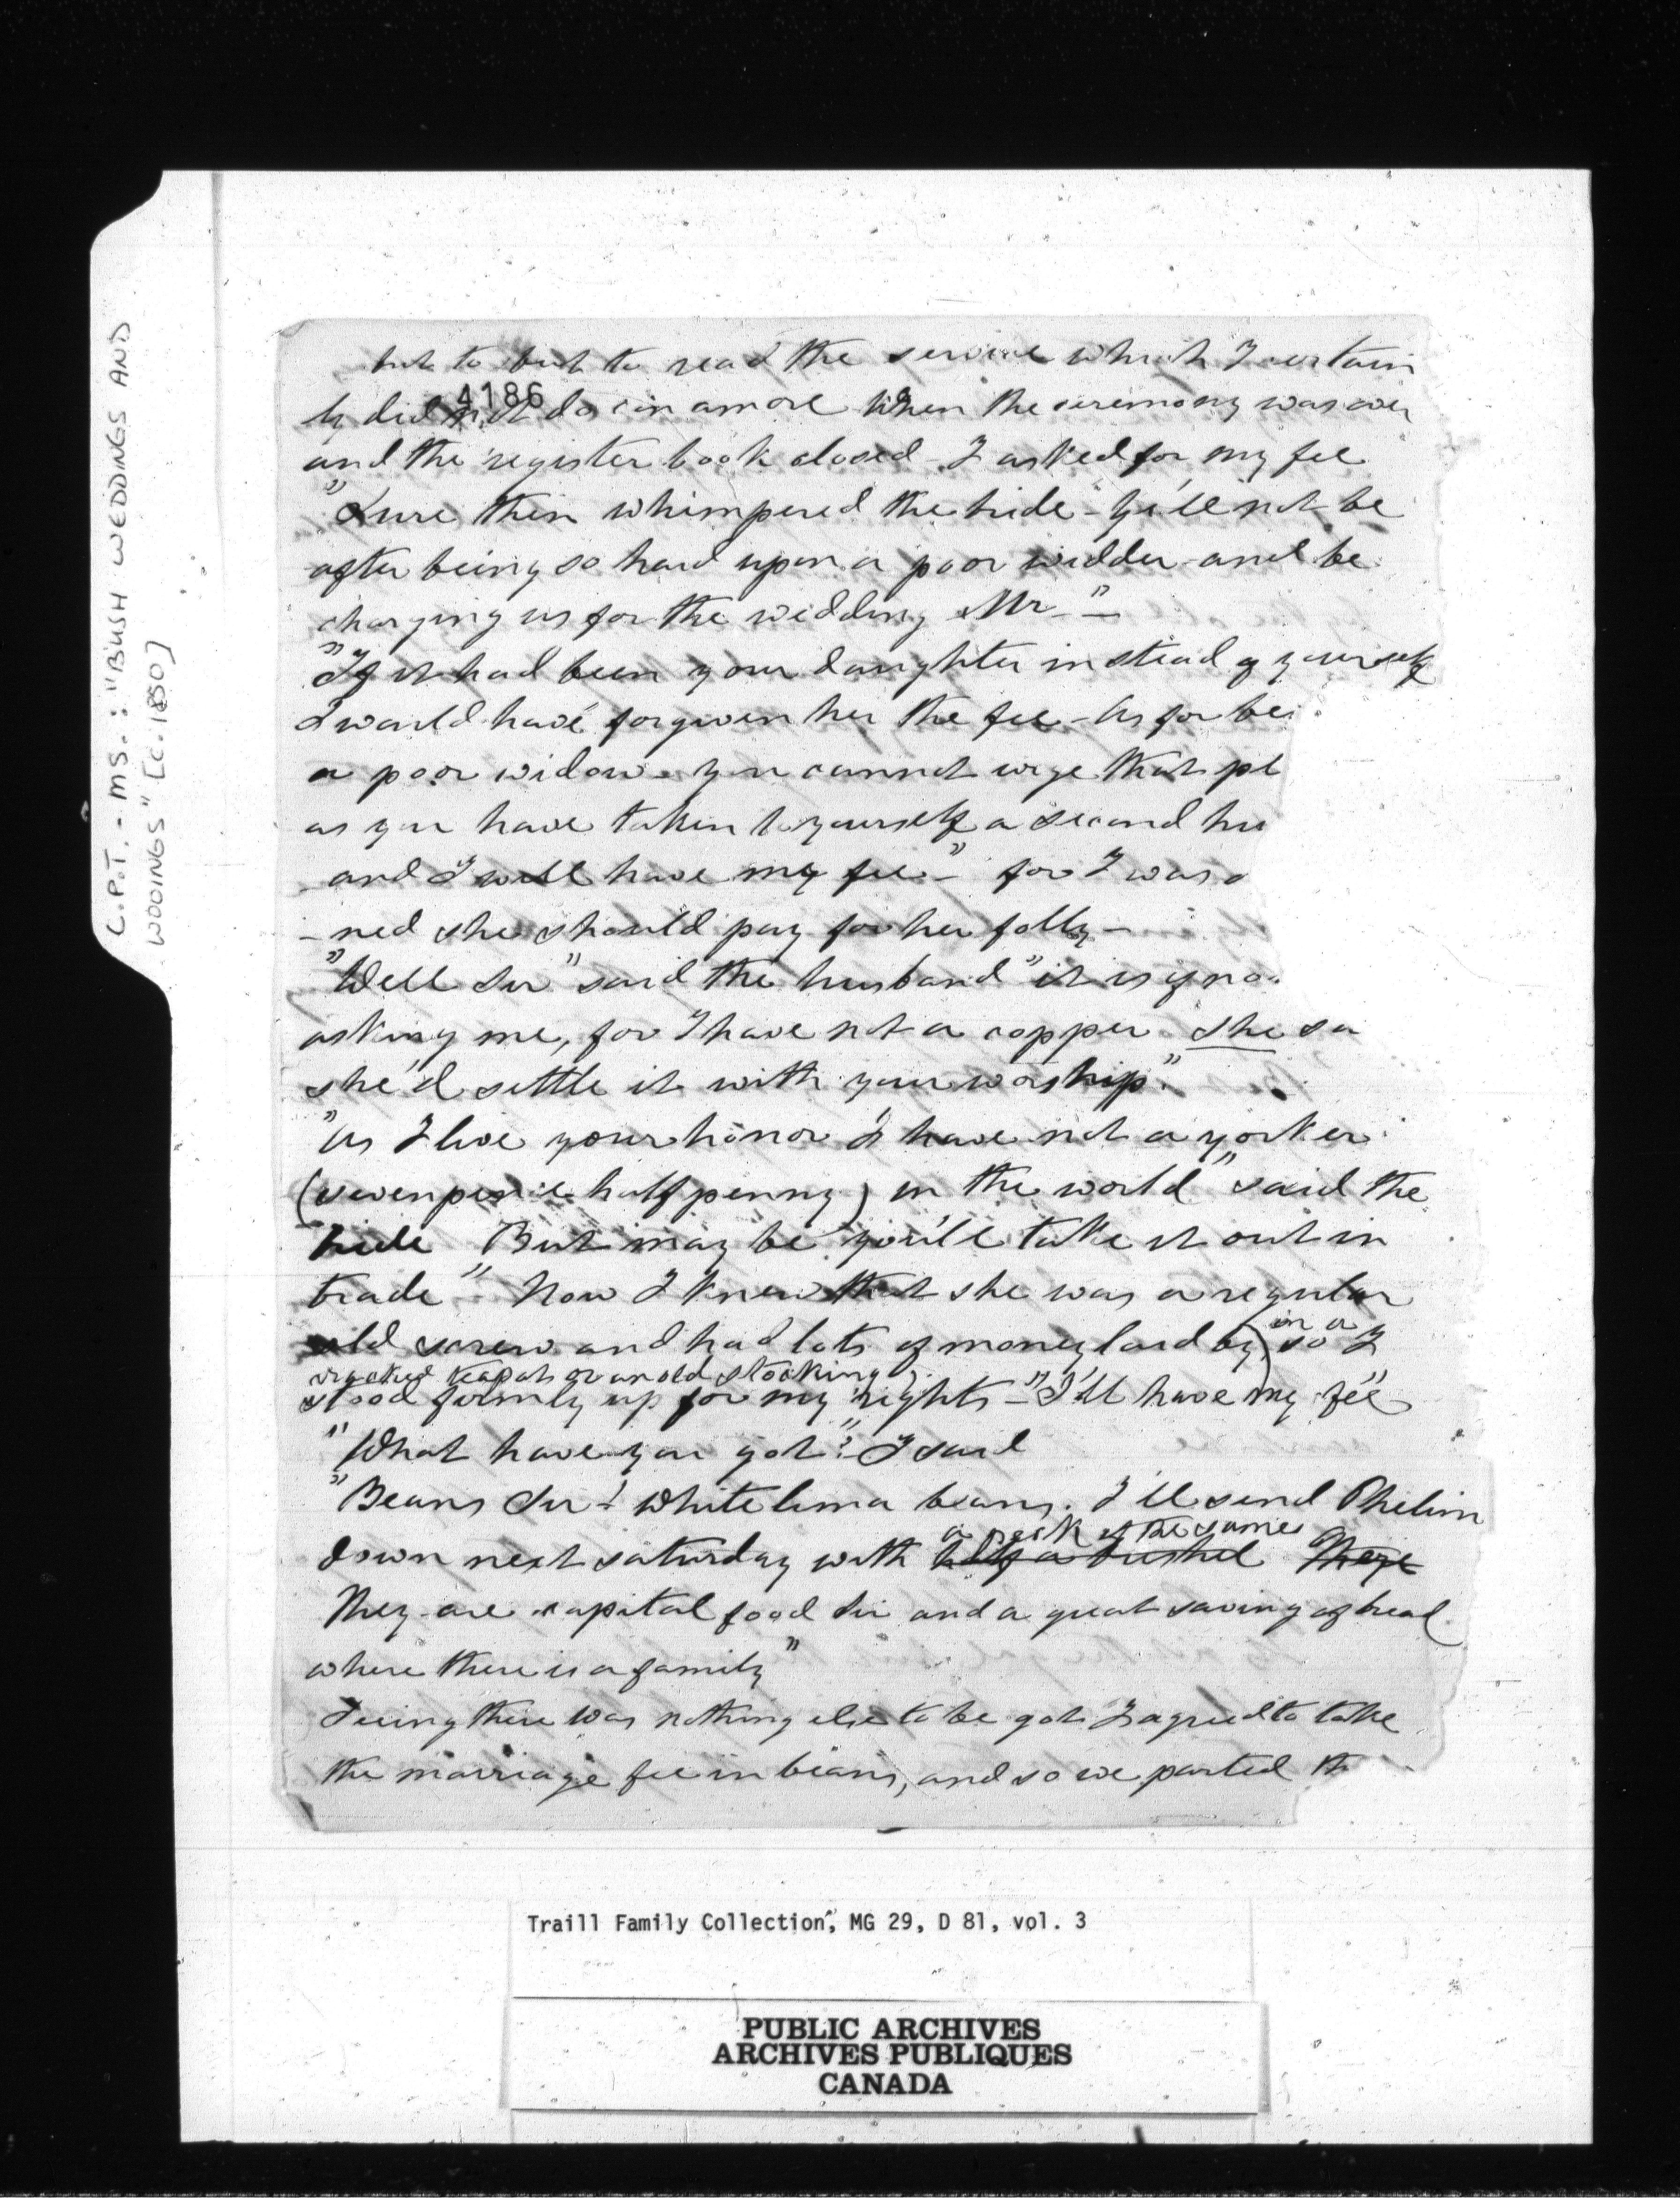 C.P.T. - MS.: "BUSH WEDDINGS AND
WOOINGS" [C. 1880]
but to but to read the service which I certain
4186
ly did not do con amore When the ceremony was over
and the register book closed - I asked for my fee
"Sure then whimpered the bride - Ye'll not be
after being so hard upon a poor widder and be
charging us for the wedding Mr - " -
"If it had been your daughter instead of yourself
I would have forgiven her the fee - As for bei
a poor widow you cannot urge that pl
as you have taken to yourself a second hu
and I will have my fee" - for I was d
- ned she should pay for her folly -
"Well Sir" said the husband "it is of no
asking me, for I have not a copper She sa
she'd settle it with your worship."
"As I live your honor I have not a yorker
(sevenpence halfpenny) in the world" said the
bride "But may be you'll take it out in
trade" Now I knew that she was a regular
old screw and had lots of money laid by) so I
in a
cracked teapot or an old stocking).
stood firmly up for my rights - "I'll have my fee"
"What have you got"? I said
"Beans Sir! White lima beans. I'll send Phelim
a peck of the same
down next saturday with half a bushel These
They are capital food Sir and a great saving of bread
where there is a family"
Seeing there was nothing else to be got I agreed to take
the marriage fee in beans, and so we parted th
Traill Family Collection, MG 29, D 81, vol. 3
PUBLIC ARCHIVES
ARCHIVES PUBLIQUES
CANADA